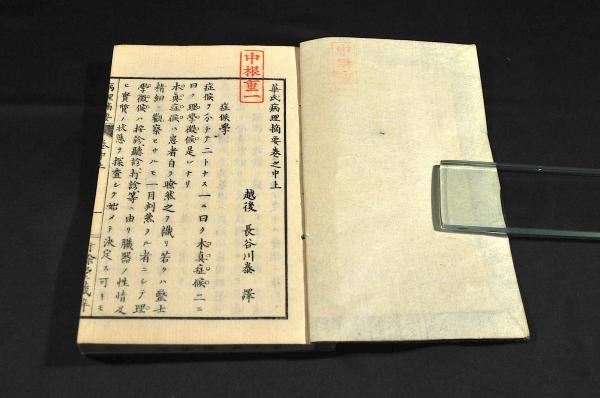 華氏病理摘要卷之中上
越後 長谷川泰 譯
症候學
症候ヲ分チテ二トナス一ニ曰ク本真症候二ニ
曰ク理學徴候是レナリ
本真症候ハ患者自ラ瞭然之ヲ識リ若クハ醫士
精細ニ觀察セサルモ一目判然タル者ニシテ理
學徴候ハ按診聽診打診等ニ由リ臓器ノ性情及
ヒ實質ノ状態ヲ探査シテ始メテ決定ス可キモ
中根重一